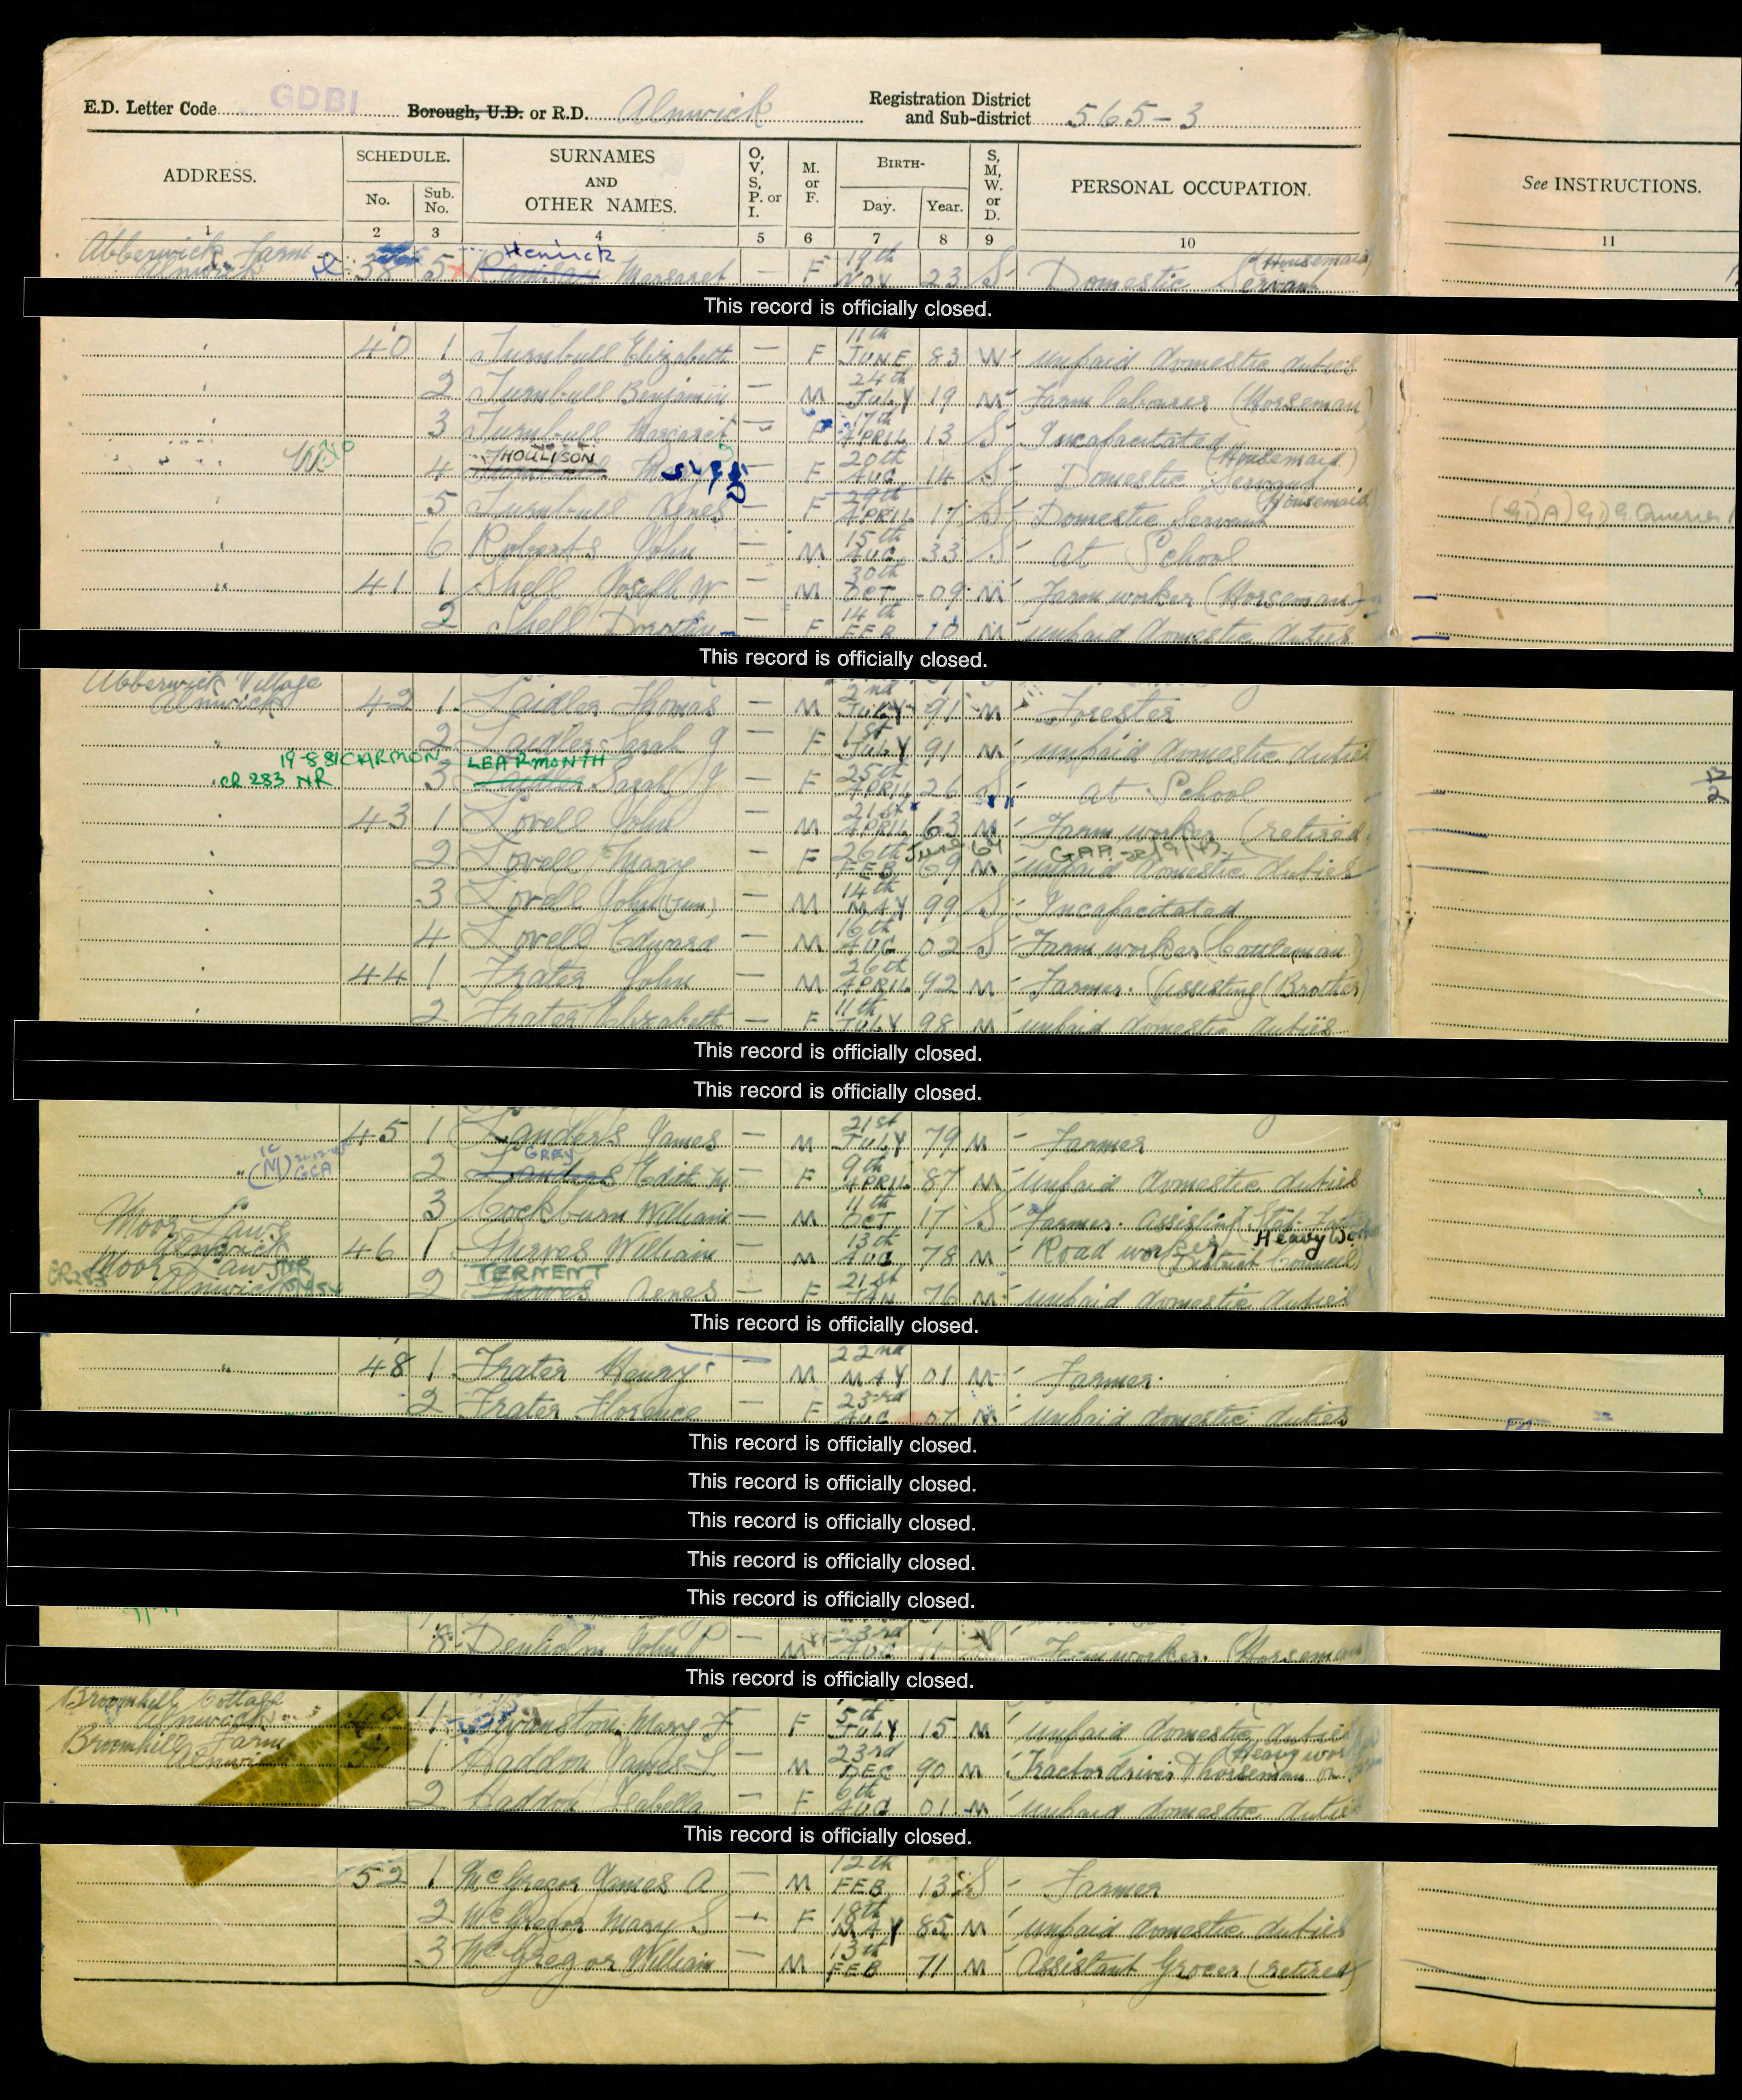 E.D. Letter Code GDBI Borough, U.D. or R.D. Alnwick Registration District and Sub-district 565-3
ADDRESS. SCHEDULE. No. Sub. No. SURNAMES AND OTHER NAMES. O, V, S, P. or I. M. or F. BIRTH- Day. Year. S, M, W. or D. PERSONAL OCCUPATION. See INSTRUCTIONS.
1 2 3 4 5 6 7 8 9 10 11
Abberwick Farm Alnwick 38 5 Henrick Margaret — F 19th NOV 23 S Domestic Servant (Housemaid)
This record is officially closed.
40 1 Turnbull Elizabeth — F 11th JUNE 83 W unpaid domestic duties
2 Turnbull Benjamin — M 24th JULY 19 M Farm labourer (Horseman)
3 Turnbull Margaret — F 17th APRIL 13 S Incapacitated
4 HOULISON — F 20th AUG 14 S Domestic Servant (Housemaid)
5 Turnbull Agnes — F 29th APRIL 17 S Domestic Servant (Housemaid)
6 Roberts John — M 15th AUG 33 S at School
41 1 Shell Joseph W — M 30th OCT 09 M Farm worker (Horseman)
2 Shell Dorothy — F 14th FEB 10 M unpaid domestic duties
This record is officially closed.
Abberwick Village Alnwick 42 1 Laidler Thomas — M 2nd JULY 91 M Forester
2 Laidler Sarah J — F 1st JULY 91 M unpaid domestic duties
19-8-81 CARMON CR 283 NR 3 LEARMONTH Laidler Sarah J — F 25th APRIL 26 S at School
43 1 Lovell John M 21st APRIL 63 M Farm worker (retired)
2 Lovell Mary — F 26th FEB 69 June 67 M GAA unpaid domestic duties
3 Lovell John (Jun) — M 14th MAY 99 S Incapacitated
4 Lovell Edward — M 16th AUG 02 S Farm worker
44 1 Frater John — M 26th APRIL 92 M Farmer. (Assisting (Brother)
2 Frater Elizabeth — F 11th JULY 98 M unpaid domestic duties
This record is officially closed.
This record is officially closed.
45 1 Landers James — M 21st JULY 79 M Farmer
2 GREY Edith M — F 9th APRIL 87 M unpaid domestic duties
3 Cockburn William — M 11th OCT 17 S Farmer. Assisting
Moor Laws Alnwick 46 1 Purves William — M 13th AUG 78 M Road worker (District Council) Heavy Work
Moor Laws Alnwick CR283 NR 2 TERNENT Purves Agnes — F 21st JAN 76 M unpaid domestic duties
This record is officially closed.
48 1 Frater Henry — M 22nd MAY 01 M Farmer.
2 Frater Florence F 23rd AUG 07 M unpaid domestic duties
This record is officially closed.
This record is officially closed.
This record is officially closed.
This record is officially closed.
This record is officially closed.
8 Denholm John P — M 23rd AUG 11 Farm worker. (Horseman
This record is officially closed.
Broomhill Cottage Alnwick 1 Mary F F 5th JULY 15 M unpaid domestic duties
Broomhill Farm Alnwick 1 Haddon James L — M 23rd DEC 90 M Tractor driver & horseman (Heavy work
2 Haddon Isabella — F 6th AUG 01 M unpaid domestic duties
This record is officially closed.
52 1 McGregor James A — M 12th FEB 13 S Farmer
2 McGregor Mary S — F 18th MAY 85 M unpaid domestic duties
3 McGregor William — M 13th FEB 71 M Assistant Grocer (retired)